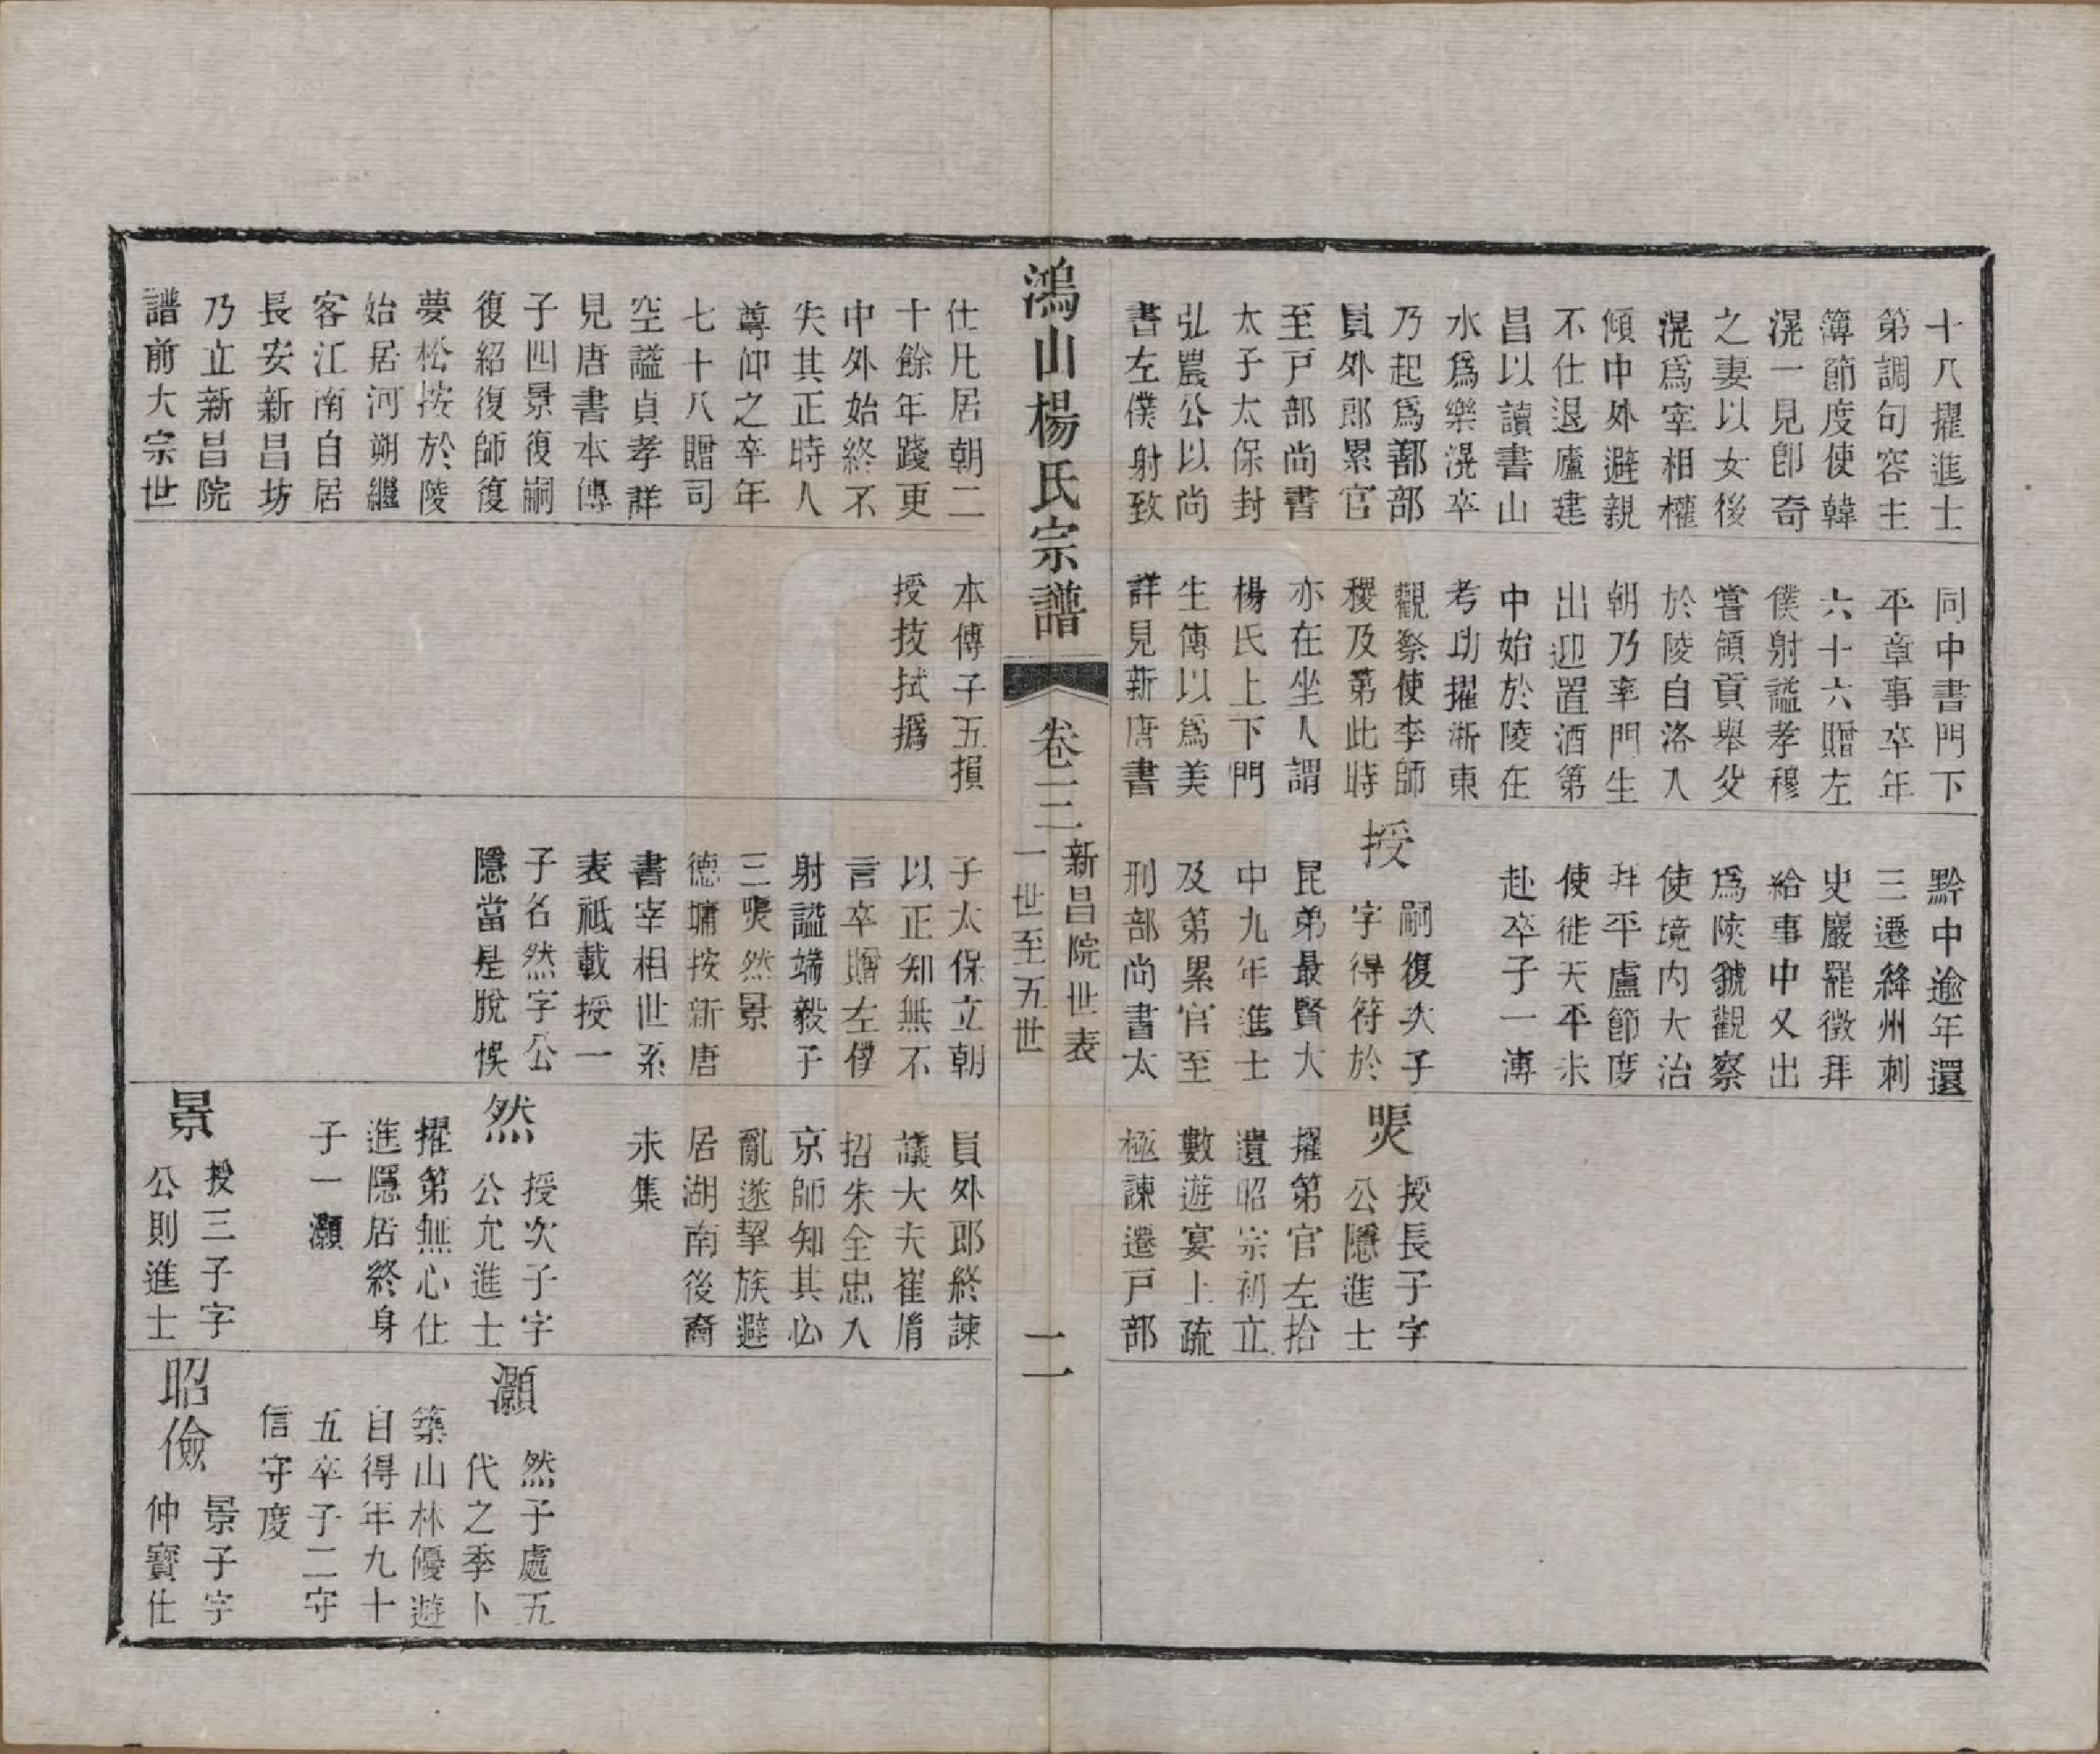 十八擢進士
第調句容主
簿節度使韓
滉一見卽奇
之妻以女後
滉爲宰相權
傾中外避親
不仕退廬建
昌以讀書山
水爲樂滉卒
乃起爲鄯部
員外郎累官
至戸部尚書
太子太保封
弘農公以尚
書左僕射致
同中書門下
平章事卒年
六十六贈左
僕射謚孝穆
嘗領貢舉父
於陵自洛入
朝乃率門生
出迎置酒第
中始於陵在
考功擢浙東
觀察使李師
稷及第此時
亦在坐人謂
楊氏上下門
生傳以爲美
詳見新唐書
黔中逾年還
三遷絳州刺
史嚴罷徵拜
給事中又出
爲陜虢觀察
使境内大治
拜平盧節度
使徙天平未
赴卒子一溥
授
嗣復次子
字得符於
昆弟最賢大
中九年進士
及第累官至
刑部尚書太
煚
授長子字
公隱進士
擢第官左拾
遺昭宗初立
數遊宴上疏
極諫遷戸部
鴻山楊氏宗譜
卷三
新昌院世表
一世至五世
二
仕凡居朝二
十餘年踐更
中外始終不
失其正時人
尊仰之卒年
七十八贈司
空謚貞孝詳
見唐書本傳
子四景復嗣
復紹復師復
夢松按於陵
始居河朔繼
客江南自居
長安新昌坊
乃立新昌院
譜前大宗世
本傳子五損
授技拭撝
子太保立朝
以正知無不
言卒贈左僕
射謚端毅子
三煚然景
德墉按新唐
書宰相世系
表祗載授一
子名然字公
隱當是脫悞
員外郎終諫
議大夫崔脀
招朱全忠入
京師知其必
亂遂挈族避
居湖南後裔
未集
然
授次子字
公允進士
擢第無心仕
進隱居終身
子一灝
景
授三子字
公則進士
灝
然子處五
代之季卜
築山林優遊
自得年九十
五卒子二守
信守度
昭儉
景子字
仲寶仕